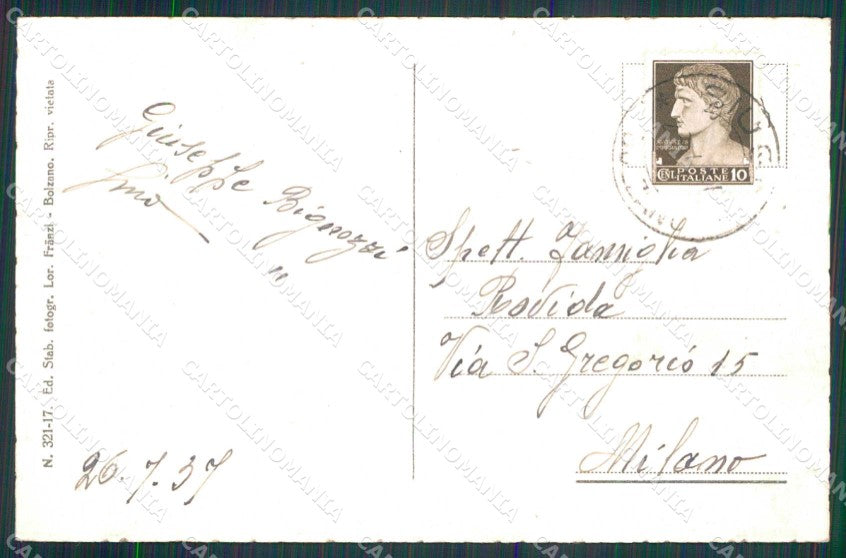 N. 321-17. Ed. Stab. fotogr. Lor. Fränzl - Bolzano. Ripr. vietata
Giuseppe Bignozzi
"
26.7.37
POSTE
ITALIANE 10
Spett. Famiglia
Rovida
Via S. Gregorio 15
Milano
CARTOLINOMANIA